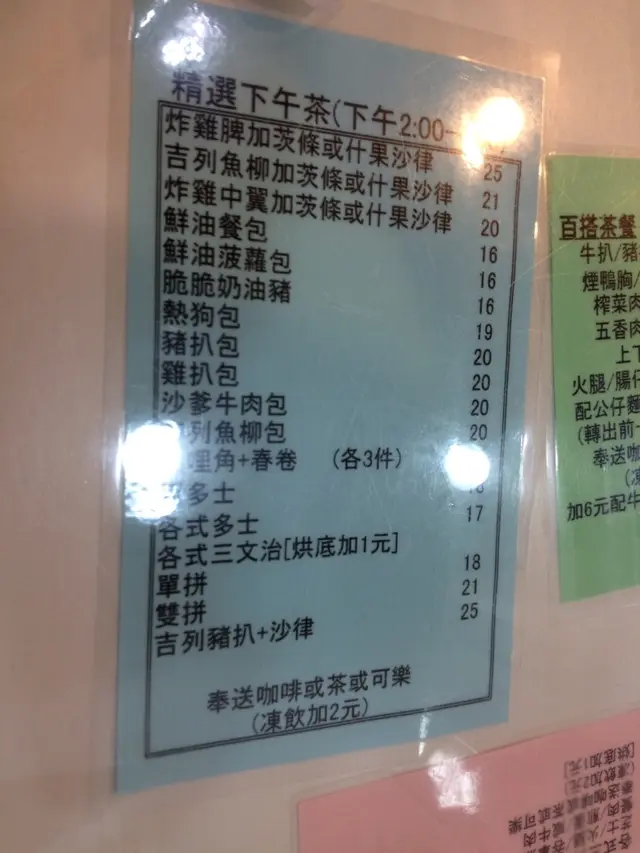 精選下午茶(下午2:00-
炸雞脾加茨條或什果沙律 25
吉列魚柳加茨條或什果沙律 21
炸雞中翼加茨條或什果沙律 20
鮮油餐包 16
鮮油菠蘿包 16
脆脆奶油豬 16
熱狗包 19
豬扒包 20
雞扒包 20
沙爹牛肉包 20
列魚柳包 20
角+春卷 (各3件)
多士
各式多士 17
各式三文治[烘底加1元]
單拼 18
雙拼 21
吉列豬扒+沙律 25
奉送咖啡或茶或可樂
(凍飲加2元)
百搭茶餐
牛扒/豬
煙鴨胸/
榨菜肉
五香肉
上
火腿/腸仔
配公仔麵
(轉出前一
奉送咖
(凍
加6元配牛
[烘底加1元]
(凍飲加2元)
奉送咖啡或茶或可樂